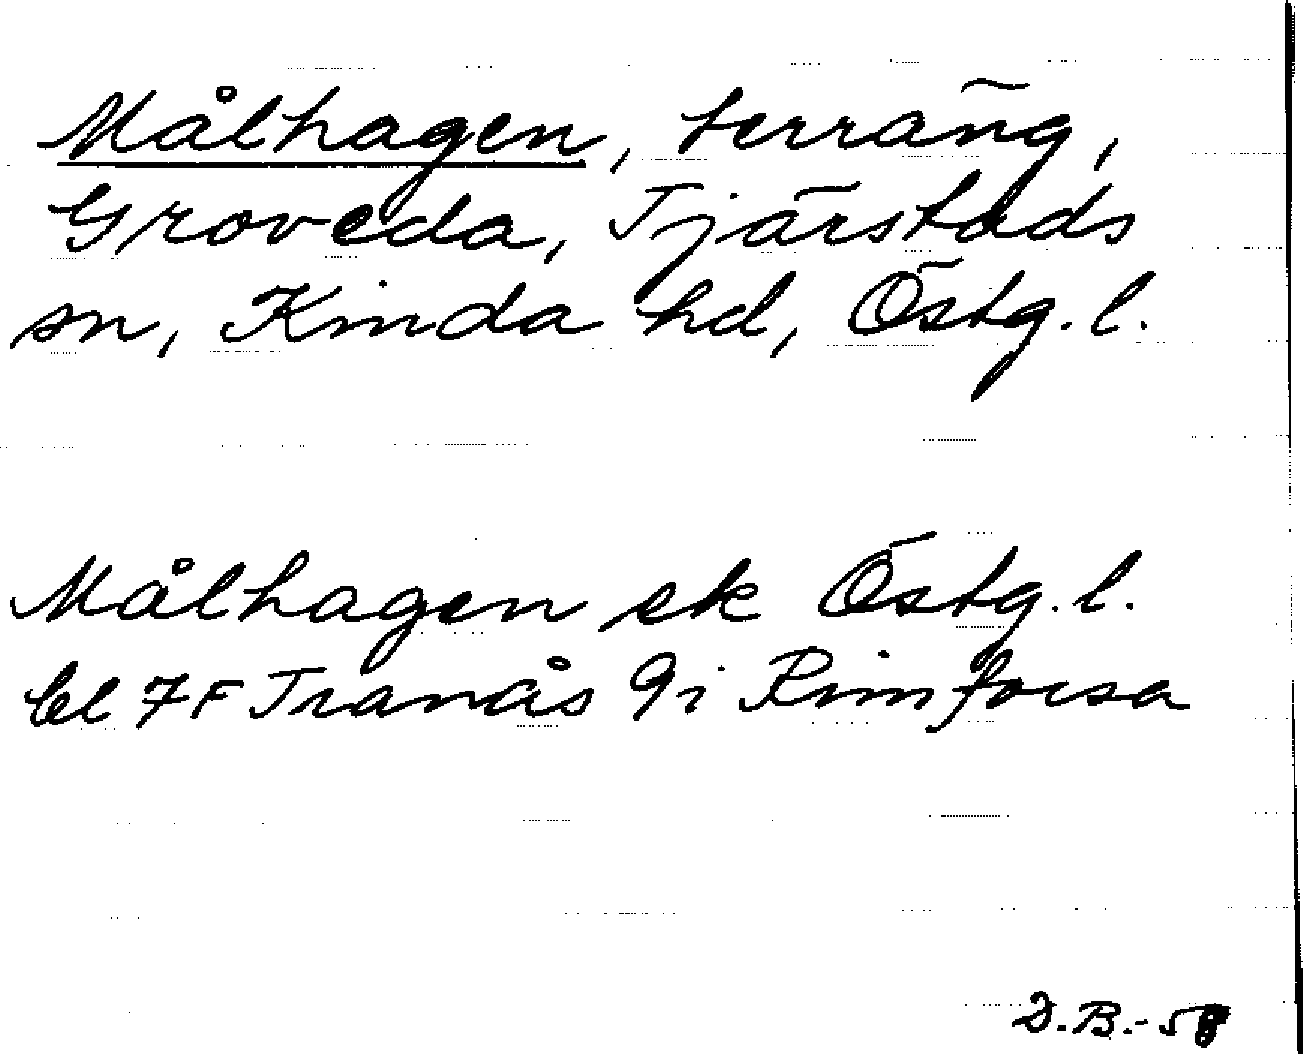 Målhagen, terräng,
Groveda, Tjärstads
sn, Kinda hd, Östg. l.
Målhagen ek Östg. l.
bl 7F Tranås 9i Rimforsa
D.B.-58